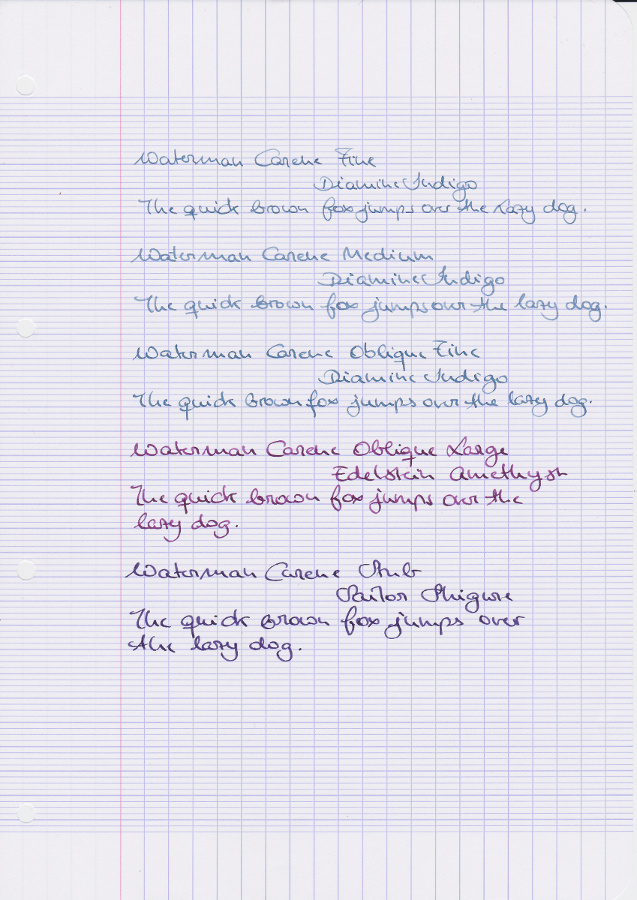 Waterman Carene Fine
Diamine Indigo
The quick brown fox jumps over the lazy dog.
Waterman Carene Medium
Diamine Indigo
The quick brown fox jumps over the lazy dog.
Waterman Carene Oblique Fine
Diamine Indigo
The quick brown fox jumps over the lazy dog.
Waterman Carene Oblique Large
Edelstein Amethyst
The quick brown fox jumps over the
lazy dog.
Waterman Carene Stub
Sailor Shigure
The quick brown fox jumps over
the lazy dog.